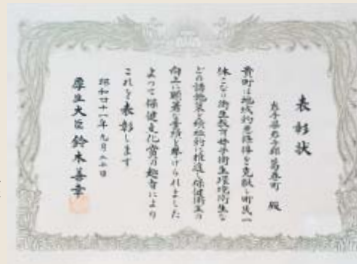 表彰状
岩手県岩手郡葛巻町 殿
貴町は地域的悪条件を克服し町民一
体となり衛生教育母子衛生環境衛生な
どの諸施策を積極的に推進し保健衛生の
向上に顕著な業績を挙げられました
よつて保健文化賞の趣旨により
これを表彰します
昭和四十一年九月 日
厚生大臣 鈴木善幸